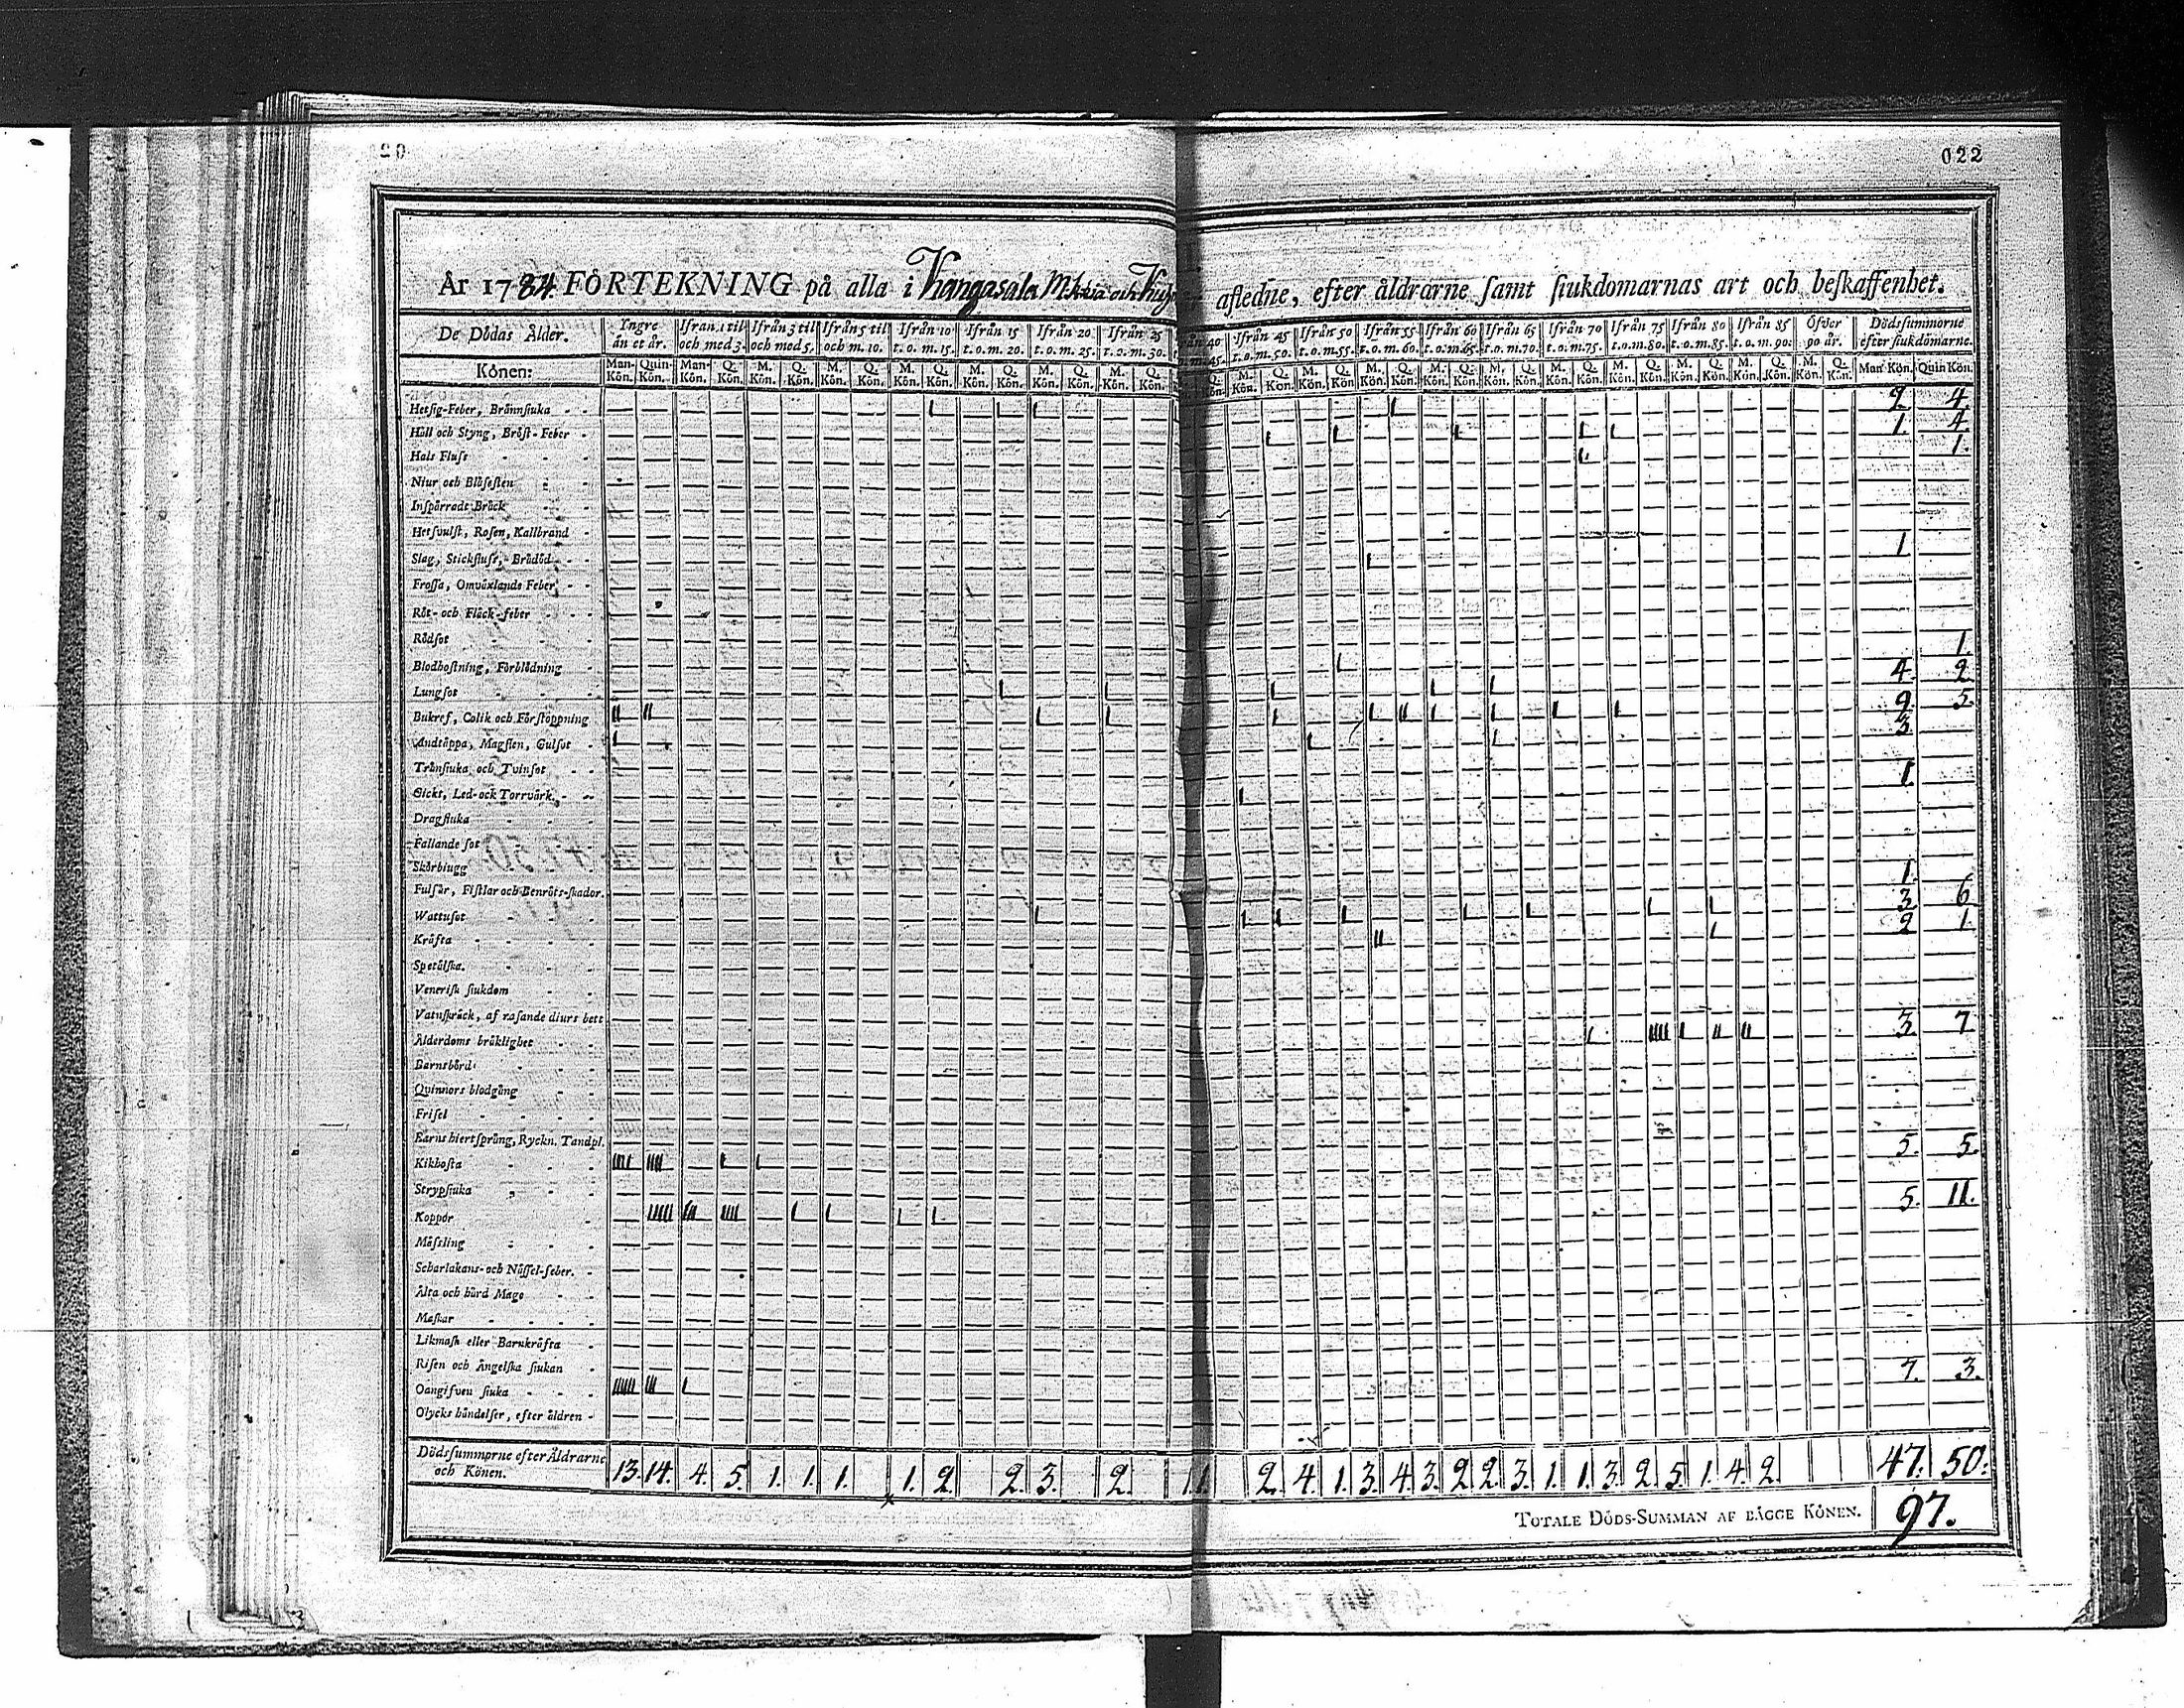 022
År 1784. FÖRTEKNING på alla i Kangasala afledne, efter åldrarne samt siukdomarnas art och beskaffenhet.
De Dödas Ålder. Yngre än et år. Ifrån 1 til och med 3. Ifrån 3 til och med 5. Ifrån 5 til och m. 10. Ifrån 10 t. o. m. 15. Ifrån 15 t. o. m. 20. Ifrån 20 t. o. m. 25. Ifrån 25 t. o. m. 30. Ifrån 45 t. o. m. 50. Ifrån 50 t. o. m. 55. Ifrån 55 t. o. m. 60. Ifrån 60 t. o. m. 65. Ifrån 65 t. o. m. 70. Ifrån 70 t. o. m. 75. Ifrån 75 t. o. m. 80. Ifrån 80 t. o. m. 85. Ifrån 85 t. o. m. 90. Öfver 90 år. Dödssummorne efter siukdomarne.
Könen: Man-Kön. Quin-Kön. Man-Kön. Q. Kön. M. Kön. Q. Kön. M. Kön. Q. Kön. M. Kön. Q. Kön. M. Kön. Q. Kön. M. Kön. Q. Kön. M. Kön. Q. Kön. Q. Kön. M. Kön. Q. Kön. M. Kön. Q. Kön. M. Kön. Q. Kön. M. Kön. Q. Kön. M. Kön. Q. Kön. M. Kön. Q. Kön. M. Kön. Q. Kön. M. Kön. Q. Kön. M. Kön. Q. Kön. M. Kön. Q. Kön. Man Kön. Quin Kön.
Hetsig-Feber, Brännsiuka 2 4
Håll och Styng, Bröst-Feber 1 4
Hals Fluss 1.
Niur och Blåsesten
Inspärradt Bråck
Hetsvulst, Rosen, Kallbrand
Slag, Stickfluss, Brådöd 1
Frossa, Omväxlande Feber
Röt- och Fläck-feber
Rödsot
Blodhostning, Förblödning 1.
Lungsot 4 2
Bukref, Colik och Förstoppning 9 5.
Andtäppa, Magsten, Gulsot 3
Trånsiuka och Tvinsot
Gickt, Led- och Torrvärk 1
Dragsiuka
Fallande sot
Skörbiugg
Fulsår, Fistlar och Benröts-skador. 1.
Wattusot 3 6
Kräfta 2 1.
Spetälska.
Venerisk siukdom
Vatuskräck, af rasande diurs bett
Ålderdoms bräklighet 3. 7
Barnsbörd
Quinnors blodgång
Frisel
Barns hiertsprång, Ryckn. Tandpl.
Kikhosta 5. 5.
Strypsiuka
Koppor 5. 11.
Mässling
Scharlakans- och Nässel-feber.
Älta och hård Mage
Maskar
Likmask eller Barnkräfta
Risen och Ängelska siukan
Oangifven siuka 7. 3.
Olycks händelser, efter åldren
Dödssummorne efter Åldrarne och Könen. 13. 14. 4. 5. 1. 1. 1. 1. 2. 2. 3. 2. 1. 1. 2. 4. 1. 3. 4. 3. 2. 2. 3. 1. 1. 3. 2. 5. 1. 4. 2. 47. 50.
TOTALE DÖDS-SUMMAN AF BÄGGE KÖNEN. 97.